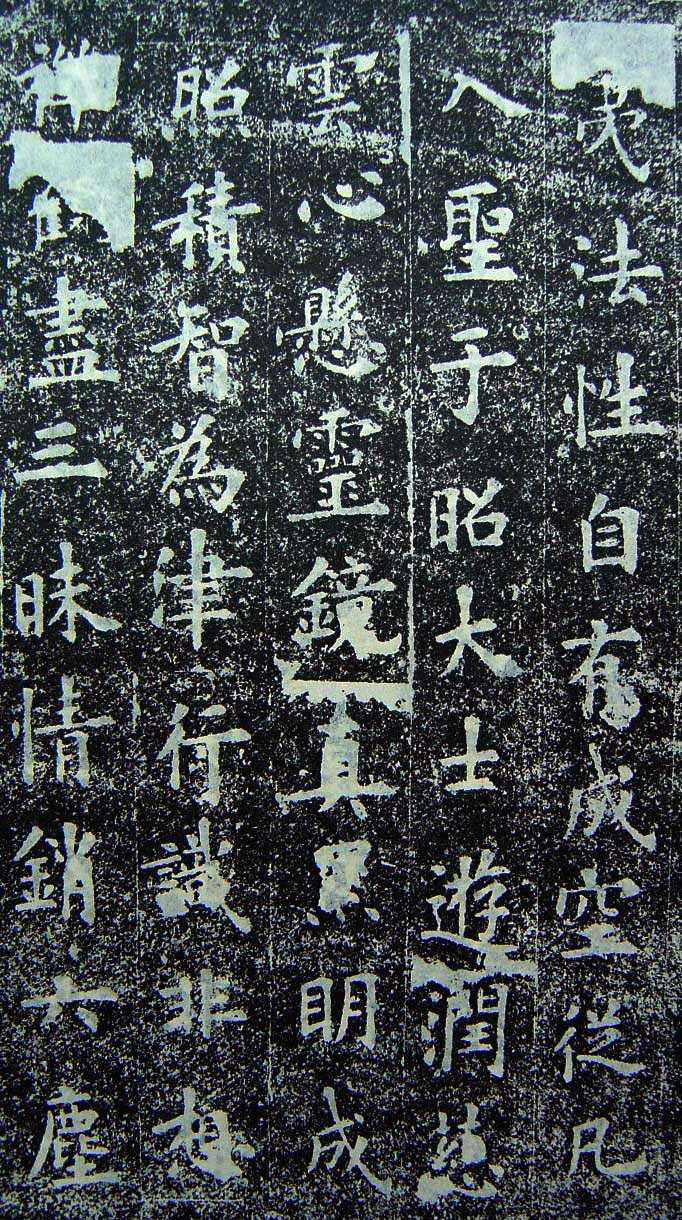 法性自有咸空從凡
入聖于昭大士遊潤慈
雲心懸靈鏡真累明成
照積智為津行識非想
禪盡三昧情銷六塵